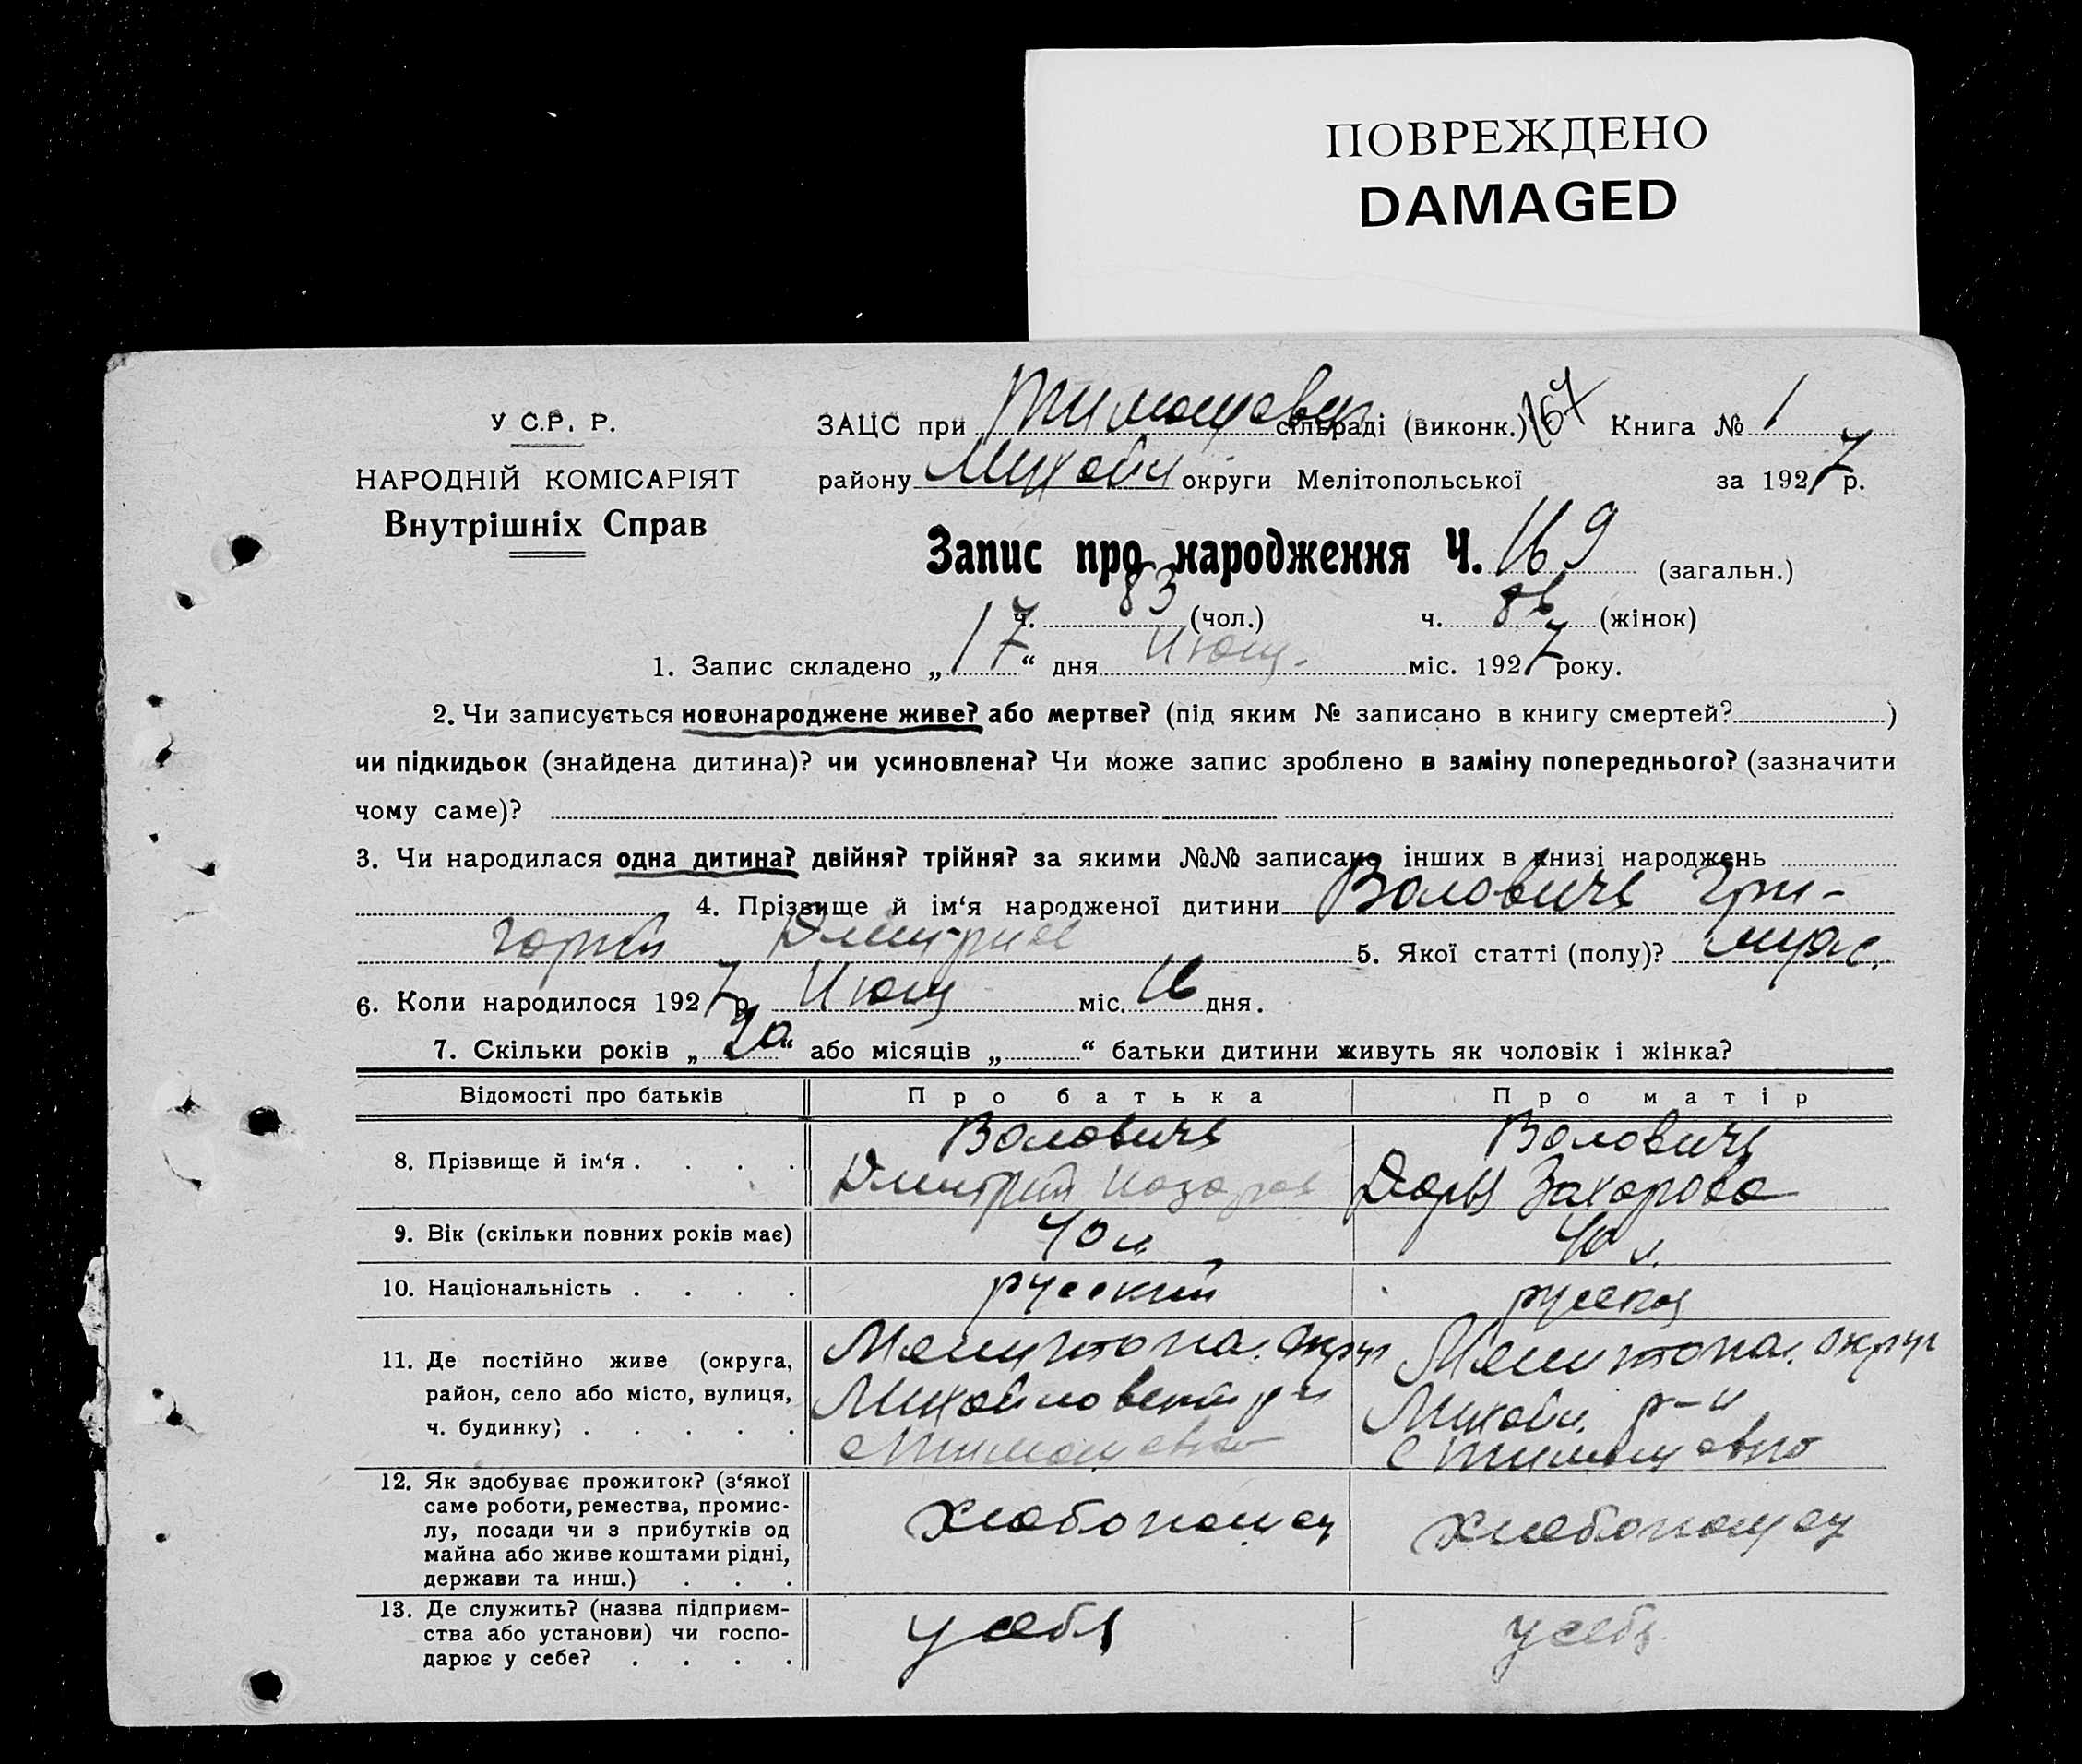 ПОВРЕЖДЕНО
DAMAGED
У С.Р. Р.
НАРОДНІЙ КОМІСАРІЯТ
Внутрішніх Справ
ЗАЦС при сільраді (виконк.) 167 Книга № 1
району Михайл округи Мелітопольської за 1927 р.
Запис про народження Ч. 169 (загальн.)
ч. 83 (чол.) ч. 86 (жінок)
1. Запис складено „17“ дня міс. 1927 року.
2. Чи записується новонароджене живе? або мертве? (під яким № записано в книгу смертей? )
чи підкидьок (знайдена дитина)? чи усиновлена? Чи може запис зроблено в заміну попереднього? (зазначити
чому саме)?
3. Чи народилася одна дитина? двійня? трійня? за якими №№ записано інших в книзі народжень
4. Прізвище й ім‘я народженої дитини Воловичь Гри-
горий Дмитриев 5. Якої статті (полу)? муж.
6. Коли народилося 1927 р. міс. 16 дня.
7. Скільки років „20“ або місяців „ “ батьки дитини живуть як чоловік і жінка?
Відомості про батьків Про батька Про матір
8. Прізвище й ім‘я . . . . Воловичь Воловичь
Дмитрий Назаров Дарья Захарова
9. Вік (скільки повних років має) 40 л. 40 л.
10. Національність . . . . русский русская
11. Де постійно живе (округа, Мелитопол. округ Мелитопол. округ
район, село або місто, вулиця, Михайловский р-н Михайл. р-н
ч. будинку) . . . . . с Тимошевко с Тимошевко
12. Як здобуває прожиток? (з‘якої
саме роботи, ремества, промис-
лу, посади чи з прибутків од хлебопашец хлебопашец
майна або живе коштами рідні,
держави та инш.) . . .
13. Де служить? (назва підприєм-
ства або установи) чи госпо- у себя у себя
дарює у себе? . . . .